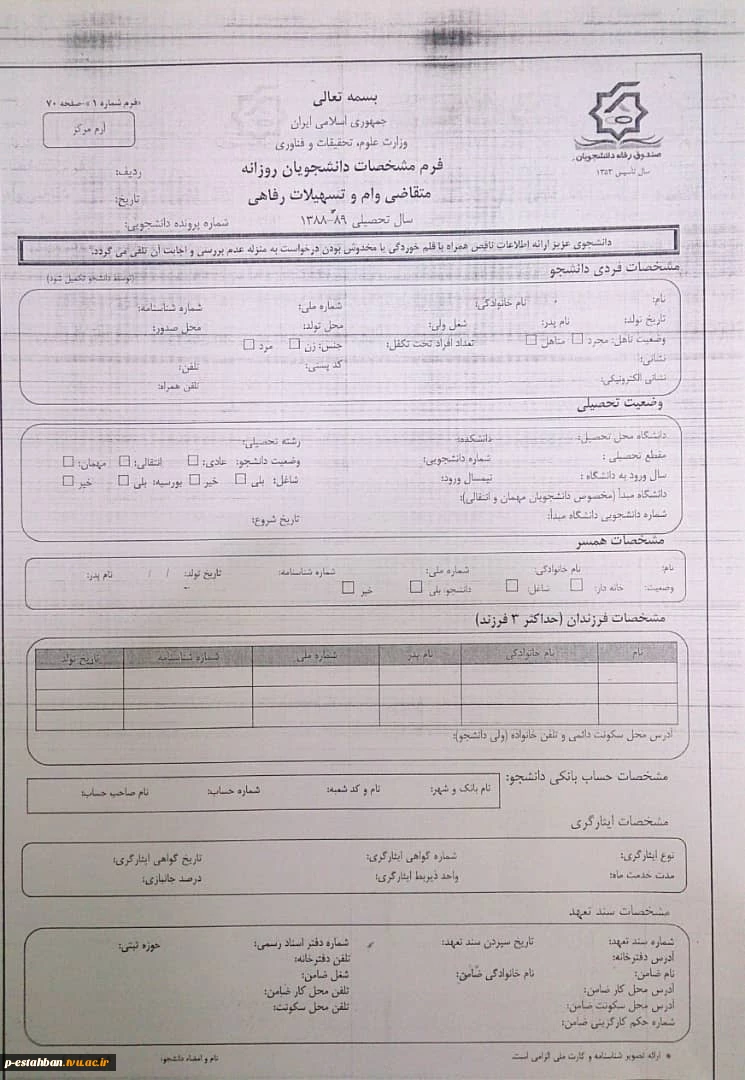 بسمه تعالی
«فرم شماره ۱»-صفحه ۷۰
آرم مرکز
جمهوری اسلامی ایران
وزارت علوم، تحقیقات و فناوری
صندوق رفاه دانشجویان
سال تاسیس ۱۳۵۳
فرم مشخصات دانشجویان روزانه
ردیف:
متقاضی وام و تسهیلات رفاهی
تاریخ:
سال تحصیلی ۸۹-۱۳۸۸
شماره پرونده دانشجویی:
دانشجوی عزیز ارائه اطلاعات ناقص همراه با قلم خوردگی یا مخدوش بودن درخواست به منزله عدم بررسی و اجابت آن تلقی می گردد.
مشخصات فردی دانشجو
(توسط دانشجو تکمیل شود)
نام: نام خانوادگی: شماره ملی: شماره شناسنامه:
تاریخ تولد: نام پدر: شغل ولی: محل تولد: محل صدور:
وضعیت تاهل: مجرد □ متاهل □ تعداد افراد تحت تکفل: جنس: زن □ مرد □
نشانی: کد پستی: تلفن:
نشانی الکترونیکی: تلفن همراه:
وضعیت تحصیلی
دانشگاه محل تحصیل: دانشکده: رشته تحصیلی:
مقطع تحصیلی : شماره دانشجویی: وضعیت دانشجو: عادی: □ انتقالی: □ مهمان: □
سال ورود به دانشگاه : نیمسال ورود: شاغل: بلی □ خیر □ بورسیه: بلی □ خیر □
دانشگاه مبدأ (مخصوص دانشجویان مهمان و انتقالی):
شماره دانشجویی دانشگاه مبدأ: تاریخ شروع:
مشخصات همسر
نام: نام خانوادگی: شماره ملی: شماره شناسنامه: تاریخ تولد: / / نام پدر:
وضعیت: خانه دار: □ شاغل: □ دانشجو: بلی □ خیر □
مشخصات فرزندان (حداکثر ۳ فرزند)
نام نام خانوادگی نام پدر شماره ملی شماره شناسنامه تاریخ تولد
آدرس محل سکونت دائمی و تلفن خانواده (ولی دانشجو):
مشخصات حساب بانکی دانشجو:
نام بانک و شهر: نام و کد شعبه: شماره حساب: نام صاحب حساب:
مشخصات ایثارگری
نوع ایثارگری: شماره گواهی ایثارگری: تاریخ گواهی ایثارگری:
مدت خدمت ماه: واحد ذیربط ایثارگری: درصد جانبازی:
مشخصات سند تعهد
شماره سند تعهد: تاریخ سپردن سند تعهد: شماره دفتر اسناد رسمی: حوزه ثبتی:
آدرس دفترخانه: تلفن دفترخانه:
نام ضامن: نام خانوادگی ضامن: شغل ضامن:
آدرس محل کار ضامن: تلفن محل کار ضامن:
آدرس محل سکونت ضامن: تلفن محل سکونت:
شماره حکم کارگزینی ضامن:
* ارائه تصویر شناسنامه و کارت ملی الزامی است.
نام و امضاء دانشجو:
p-estahban.tvu.ac.ir